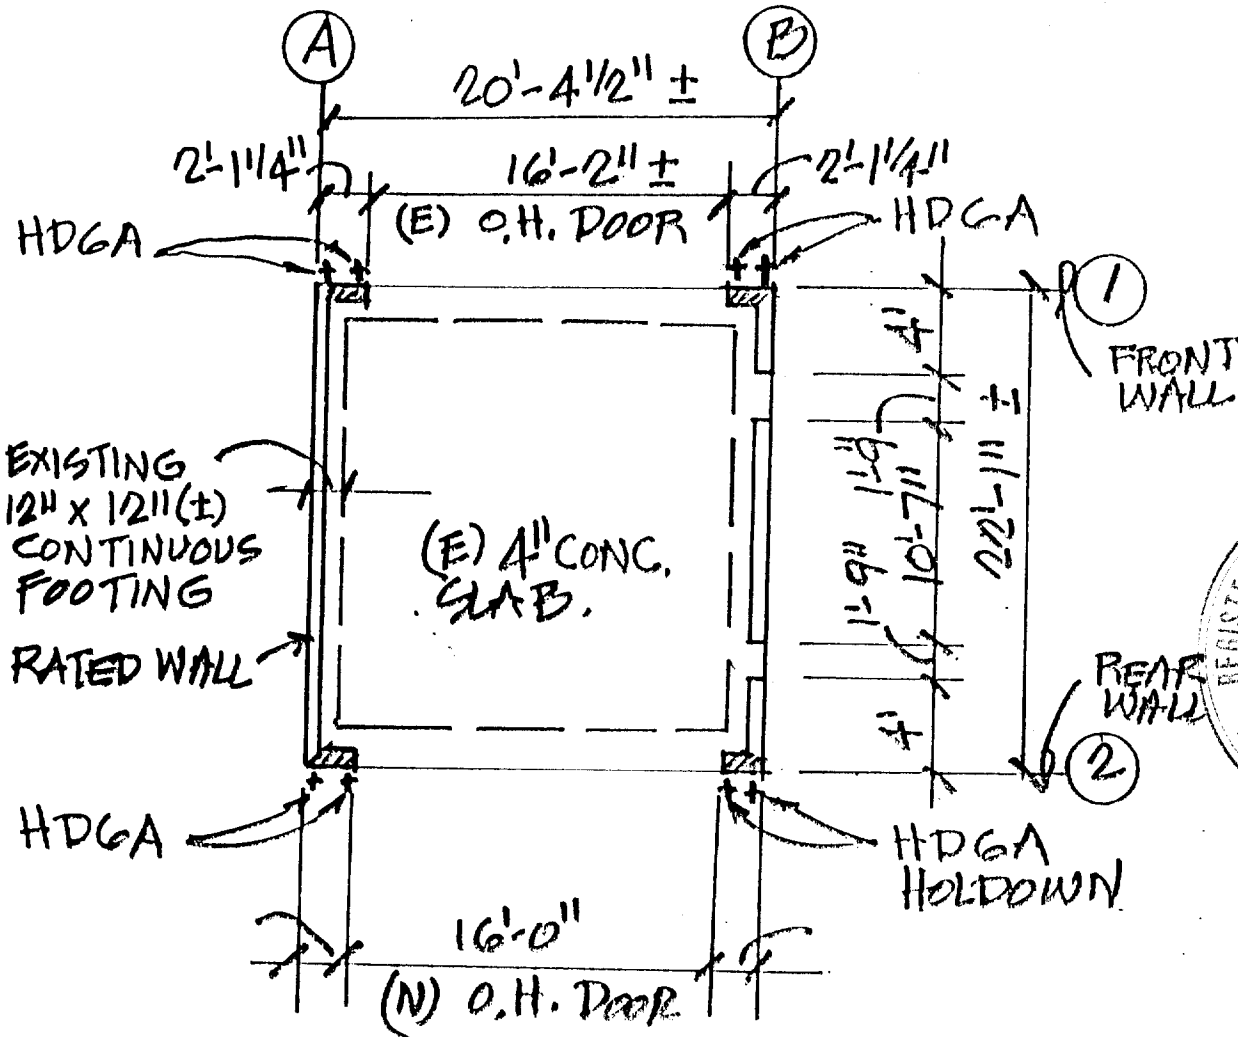 A
B
20'-4 1/2" ±
2'-1 1/4"
16'-2" ±
2'-1 1/4"
(E) O.H. DOOR
HD6A
HD6A
1
FRONT
WALL
4'
1'-9"
10'-7"
1'-9"
4'
22'-1" ±
EXISTING
12" X 12" (±)
CONTINUOUS
FOOTING
(E) 4" CONC.
SLAB.
RATED WALL
REAR
WALL
2
HD6A
HD6A
HOLDOWN
16'-0"
(N) O.H. DOOR